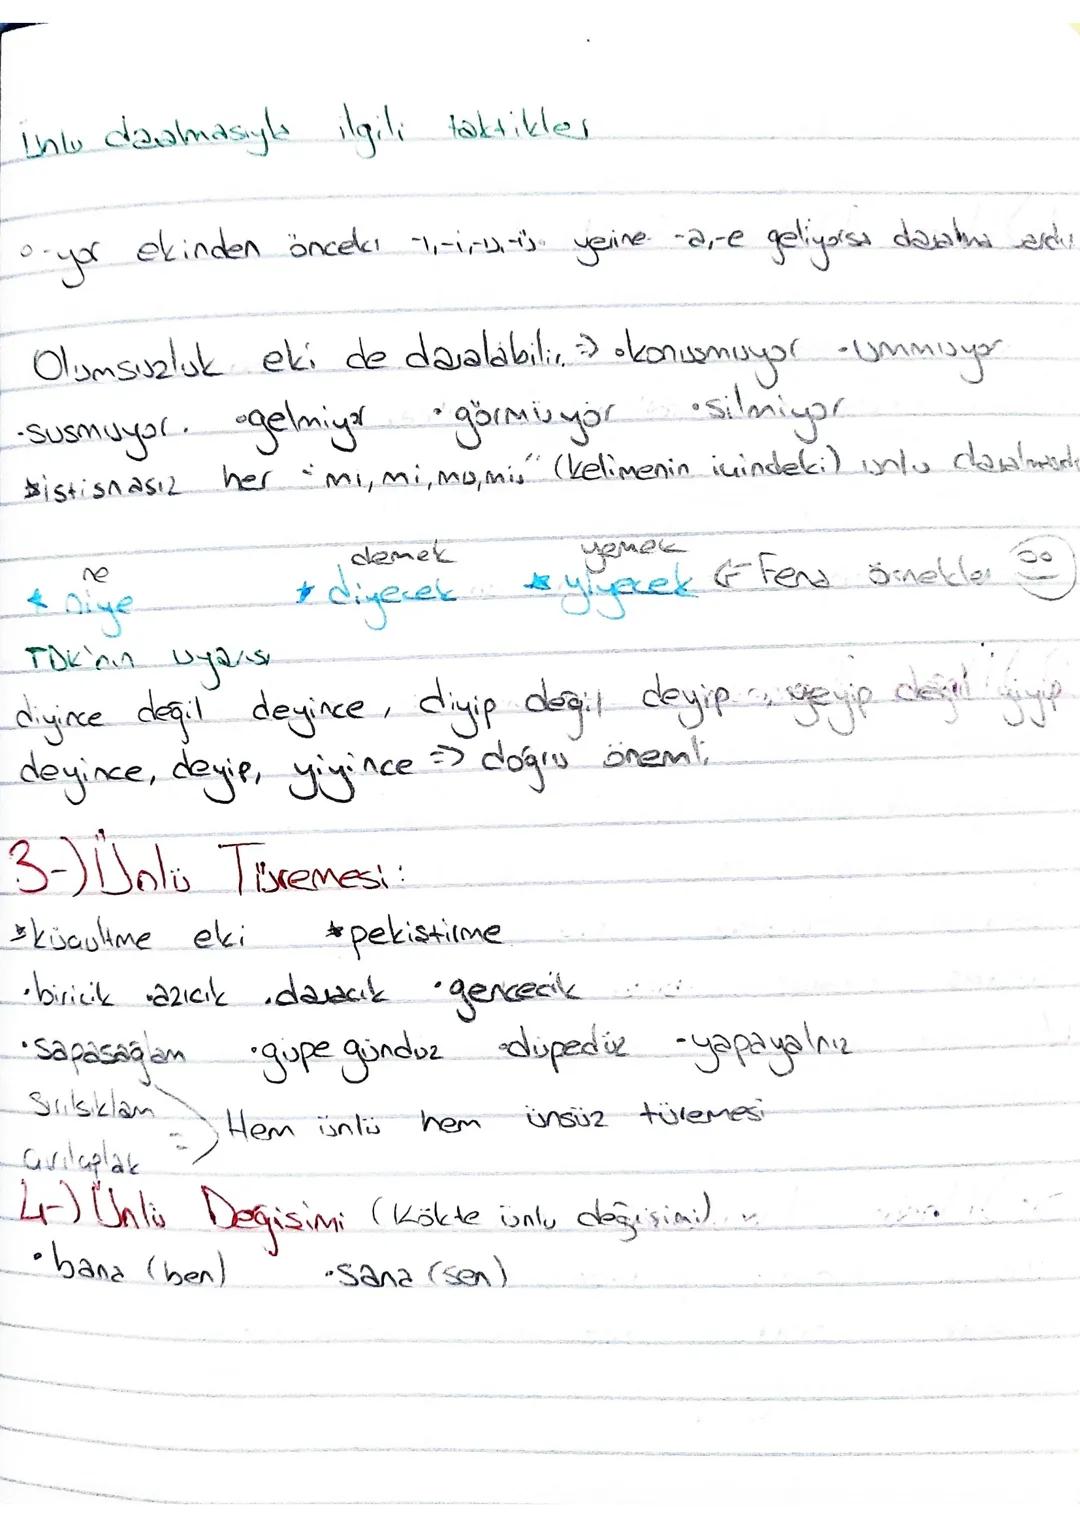 Ünlü daralmasıyla ilgili taktikler
-yor ekinden önceki -ı,-i,-u,-ü yerine -a,-e geliyorsa daralma vardır
Olumsuzluk eki de daralabilir. => •konuşmuyor •ummuyor
•susmuyor. •gelmiyor •görmüyor •silmiyor
*istisnasız her "mı, mi, mu, mü" (kelimenin içindeki) ünlü daralmasıdır
ne demek yemek
* niye * diyecek * yiyecek <= Fena örnekler
TDK'nın uyarısı
diyince değil deyince, diyip değil deyip, yeyip değil yiyip
deyince, deyip, yiyince => doğru önemli
3-) Ünlü Türemesi:
*küçültme eki *pekiştirme
•biricik •azıcık •daracık •gencecik
•sapasağlam •güpegündüz •düpedüz •yapayalnız
Sırılsıklam
=> Hem ünlü hem ünsüz türemesi
çırılçıplak
4-) Ünlü Değişimi (Kökte ünlü değişimi)
•bana (ben) •sana (sen)